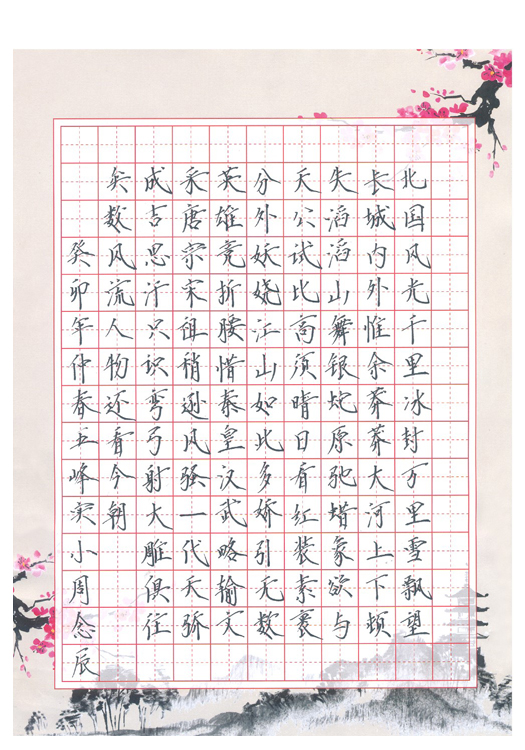 北国风光千里冰封万里雪飘望
长城内外惟余莽莽大河上下顿
失滔滔山舞银蛇原驰蜡象欲与
天公试比高须晴日看红装素裹
分外妖娆江山如此多娇引无数
英雄竞折腰惜秦皇汉武略输文
采唐宗宋祖稍逊风骚一代天骄
成吉思汗只识弯弓射大雕俱往
矣数风流人物还看今朝
癸卯年仲春五峰实小周念辰